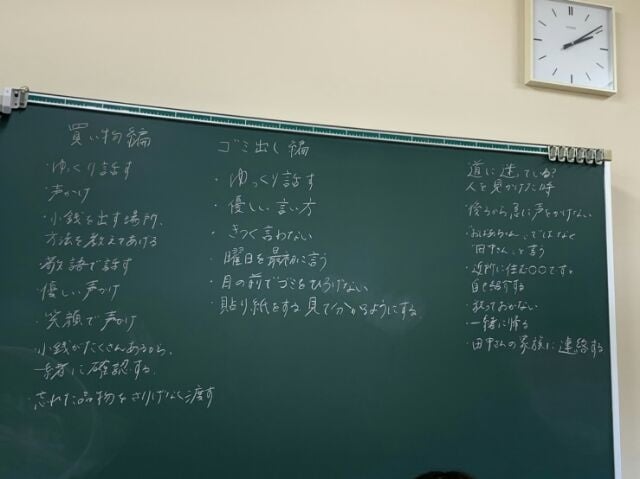 買い物編
・ゆっくり話す
・声かけ
・小銭を出す場所、
方法を教えてあげる
敬語で話す
優しい声かけ
・笑顔で声かけ
・小銭がたくさんあるから、
一緒に確認する。
・忘れた品物をさりげなく渡す
ゴミ出し編
・ゆっくり話す
・優しい言い方
・きつく言わない
・曜日を最初に言う
・目の前でゴミをひろげない
・貼り紙をする 見て分かるようにする
道に迷っている?
人を見かけた時
・後ろから急に声をかけない
・おばあちゃん、ではなく
"田中さん"と言う
・近所に住む○○です。
自己紹介する
・放っておかない
・一緒に帰る
・田中さんの家族に連絡する